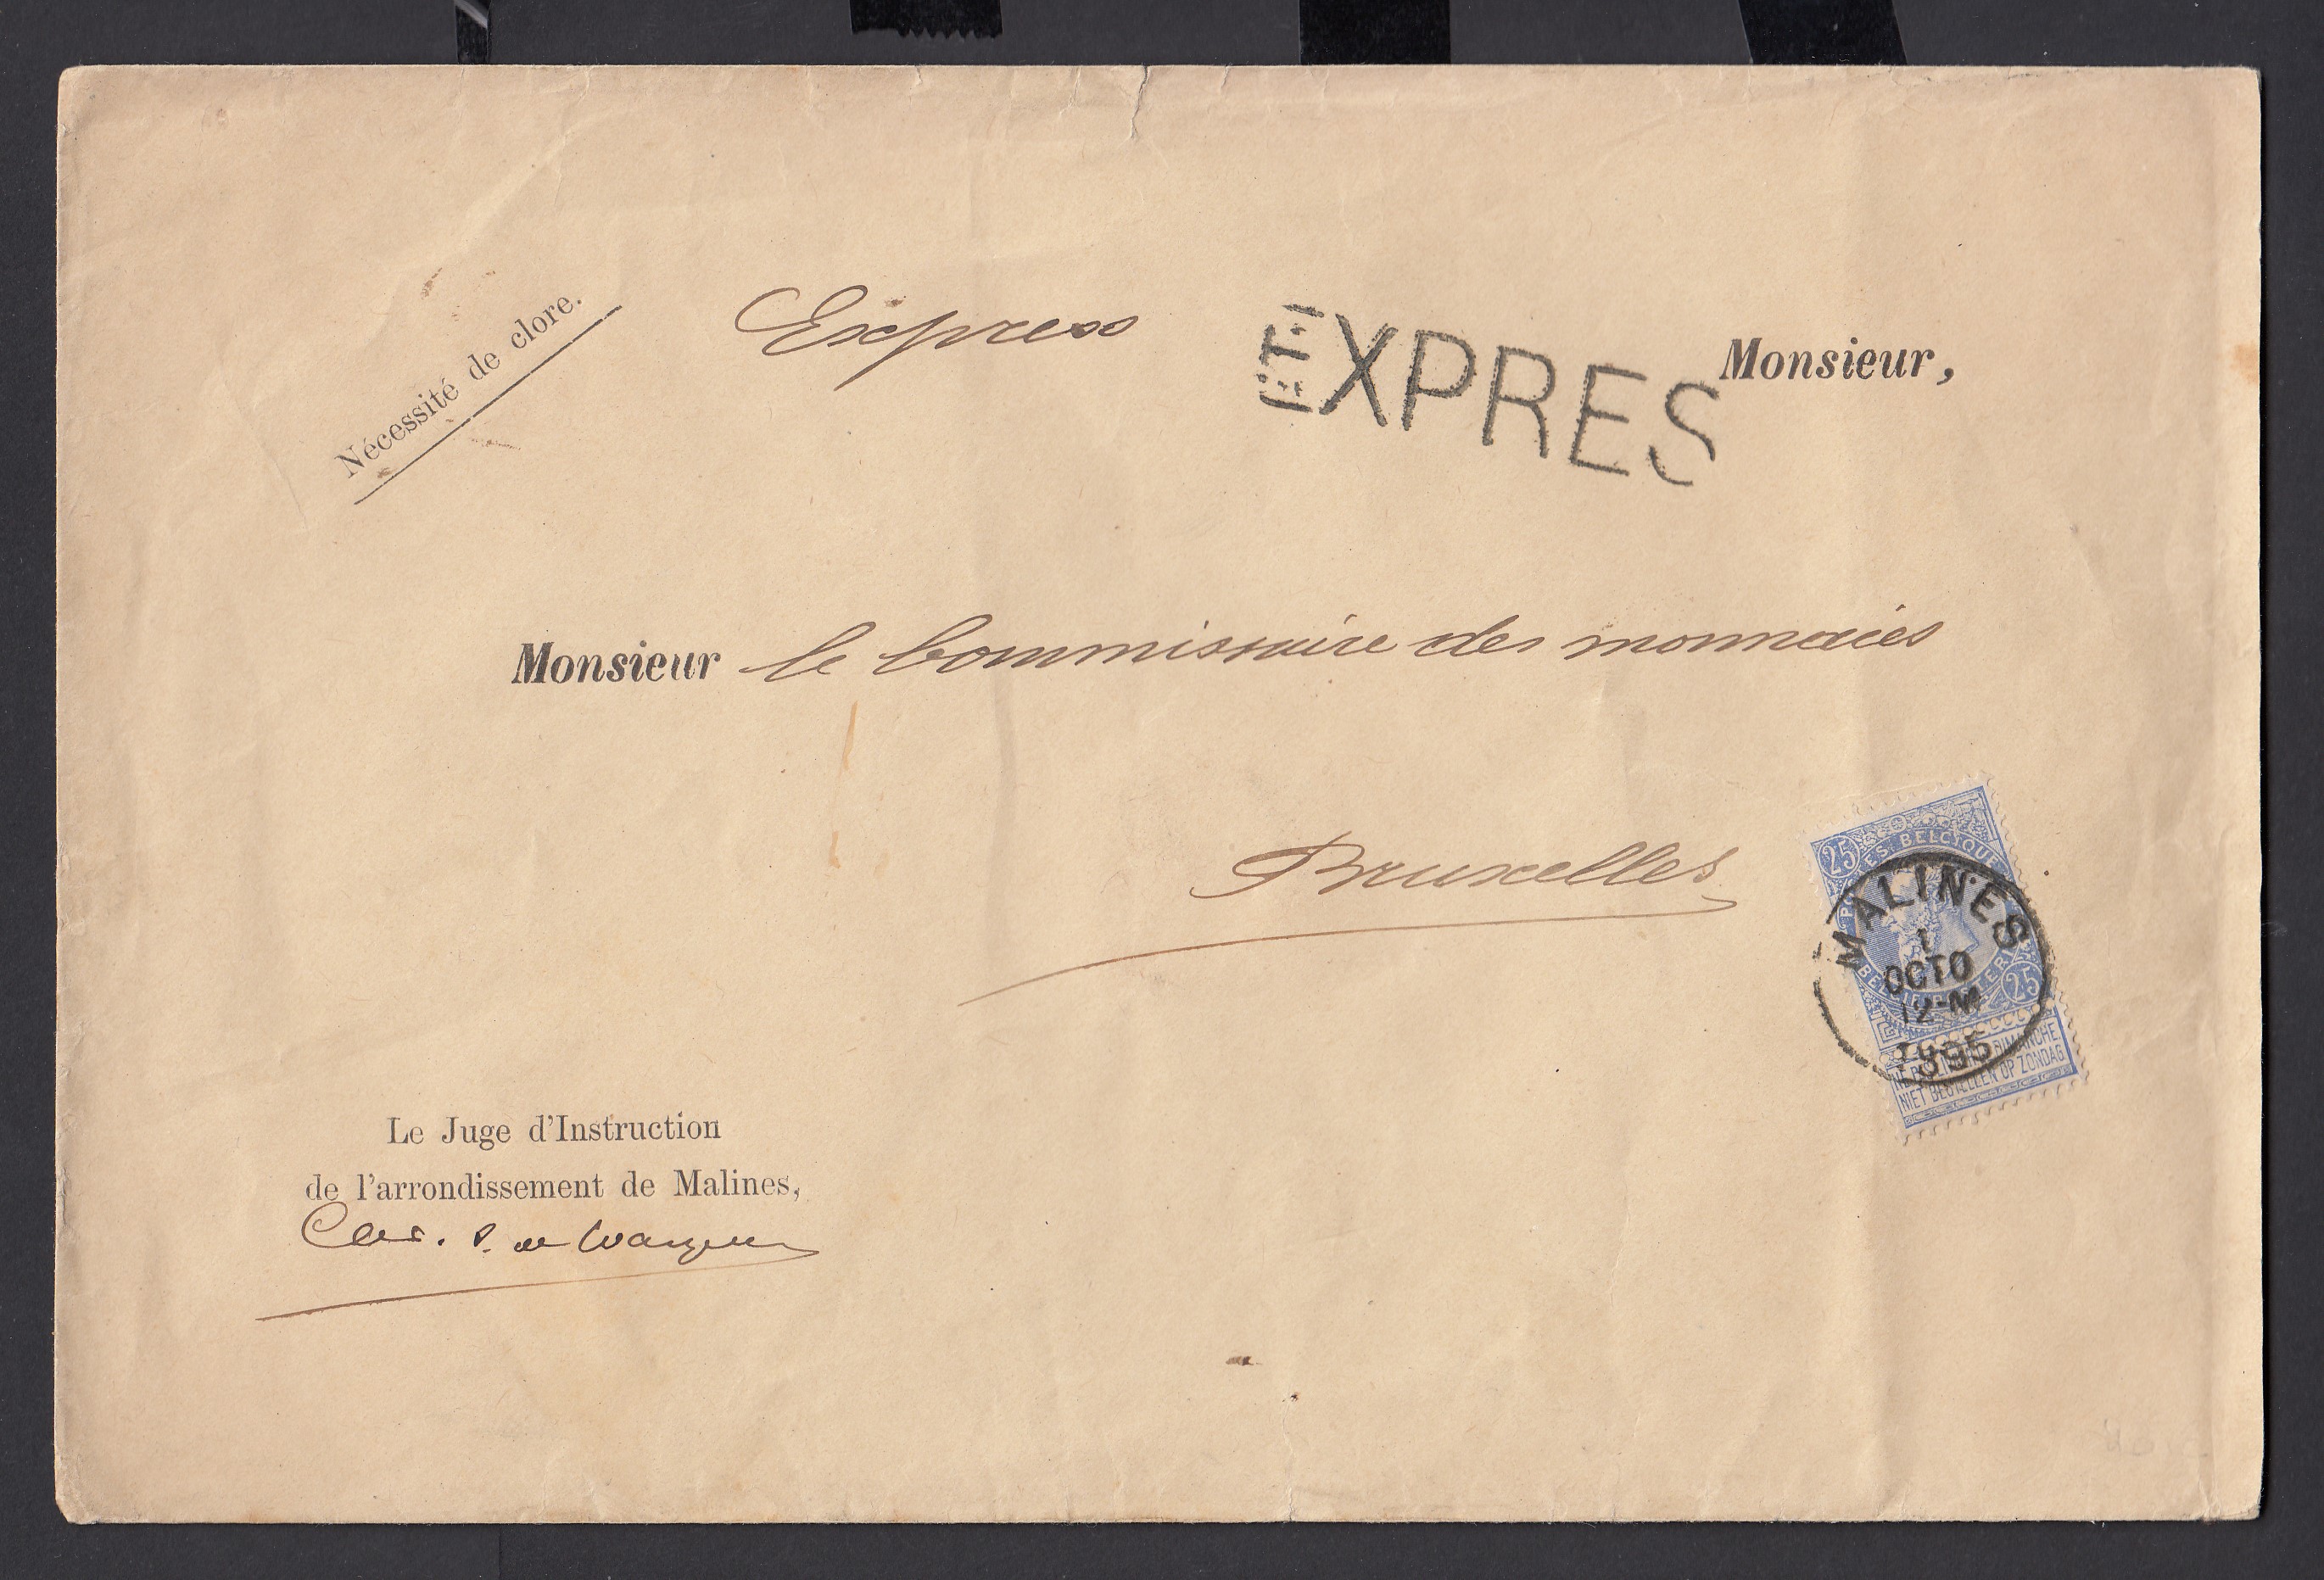 Nécessité de clore.
Express
EXPRES
Monsieur,
Monsieur le Commissaire des monnaies
Bruxelles
25
POSTES BELGIQUE
BELGIE
25
NE PAS LIVRER LE DIMANCHE
NIET BESTELLEN OP ZONDAG
MALINES
1
OCTO
12-M
1895
Le Juge d'Instruction
de l'arrondissement de Malines,